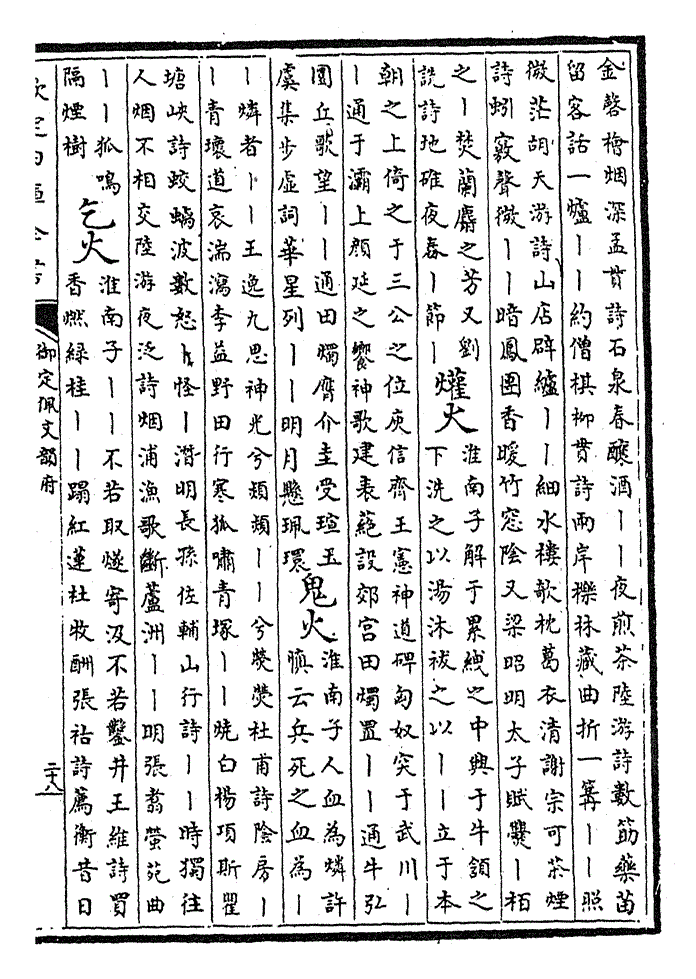 金磬梅烟深孟貫詩石泉春釀酒丨丨夜煎茶陸游詩數筯藥苗
留客話一爐丨丨約僧棋柳貫詩兩岸櫟林藏曲折一篝丨丨照
微茫胡天游詩山店辟纑丨丨細水樓欹枕葛衣清謝宗可茶煙
詩蚓竅聲微丨丨暗鳳團香暖竹窓陰又梁昭明太子賦爨丨栢
之丨焚蘭麝之芳又劉
詵詩地碓夜舂丨節丨
爟火
淮南子解于累絏之中興于牛頷之
下洗之以湯沐祓之以丨丨立于本
朝之上倚之于三公之位庾信齊王憲神道碑匈奴突于武川丨
丨通于灞上顏延之饗神歌建表蕝設郊宫田燭置丨丨通牛弘
圜丘歌望丨丨通田燭膺介圭受瑄玉
虞集步虛詞華星列丨丨明月懸珮環
鬼火
淮南子人血為燐許
慎云兵死之血為丨
丨燐者丨丨王逸九思神光兮熲熲丨丨兮熒熒杜甫詩陰房丨
丨青壞道哀湍瀉李益野田行寒狐嘯青塚丨丨燒白楊項斯瞿
塘峽詩蛟螭波數怒丨怪丨潛明長孫佐輔山行詩丨丨時獨往
人烟不相交陸游夜泛詩烟浦漁歌斷蘆洲丨丨明張翥螢苑曲
丨丨狐鳴
隔煙樹
乞火
淮南子丨丨不若取燧寄汲不若鑿井王維詩買
香燃綠桂丨丨蹋紅蓮杜牧酬張祜詩薦衡昔日
欽定四庫全書
御定佩文韻府
二十八